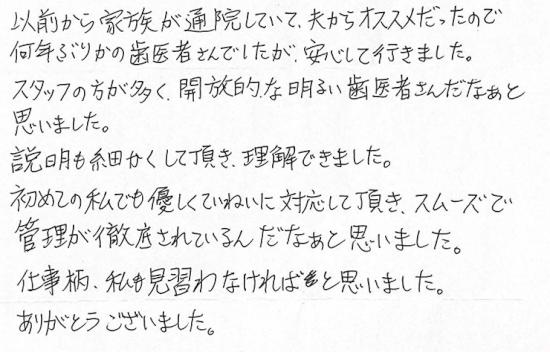 以前から家族が通院していて、夫からオススメだったので
何年ぶりかの歯医者さんでしたが、安心して行きました。
スタッフの方が多く、開放的な明るい歯医者さんだなぁと
思いました。
説明も細かくして頂き、理解できました。
初めての私でも優しくていねいに対応して頂き、スムーズで
管理が徹底されているんだなぁと思いました。
仕事柄、私も見習わなければと思いました。
ありがとうございました。